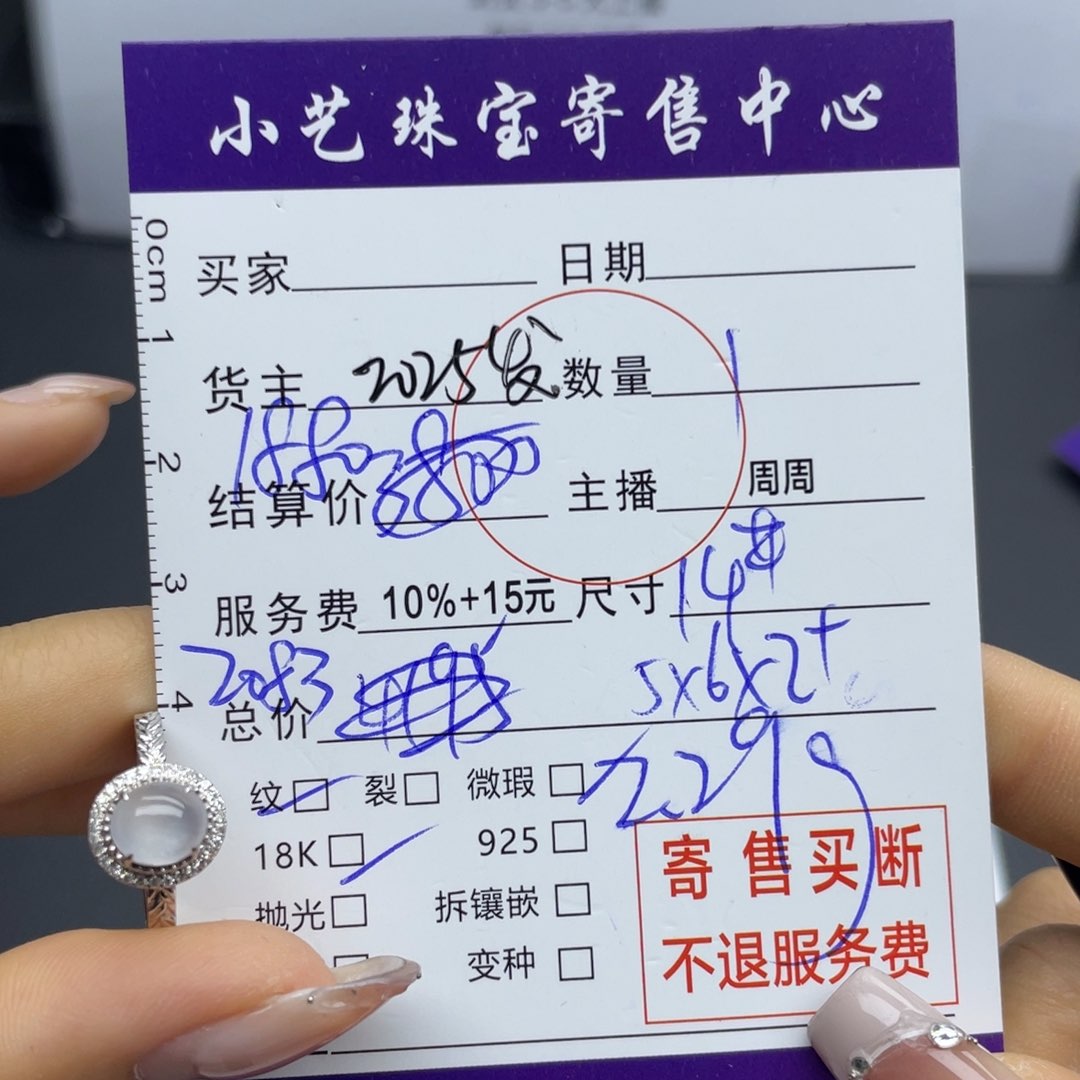 小艺珠宝寄售中心
0cm 1 2 3 4
买家 日期
货主 2025发 数量 1
1880
结算价 主播 周周
服务费 10%+15元 尺寸 14#
2083 5x6x2+
总价
纹 裂 微瑕 2.29g
18K 925
抛光 拆镶嵌
变种
寄售买断
不退服务费